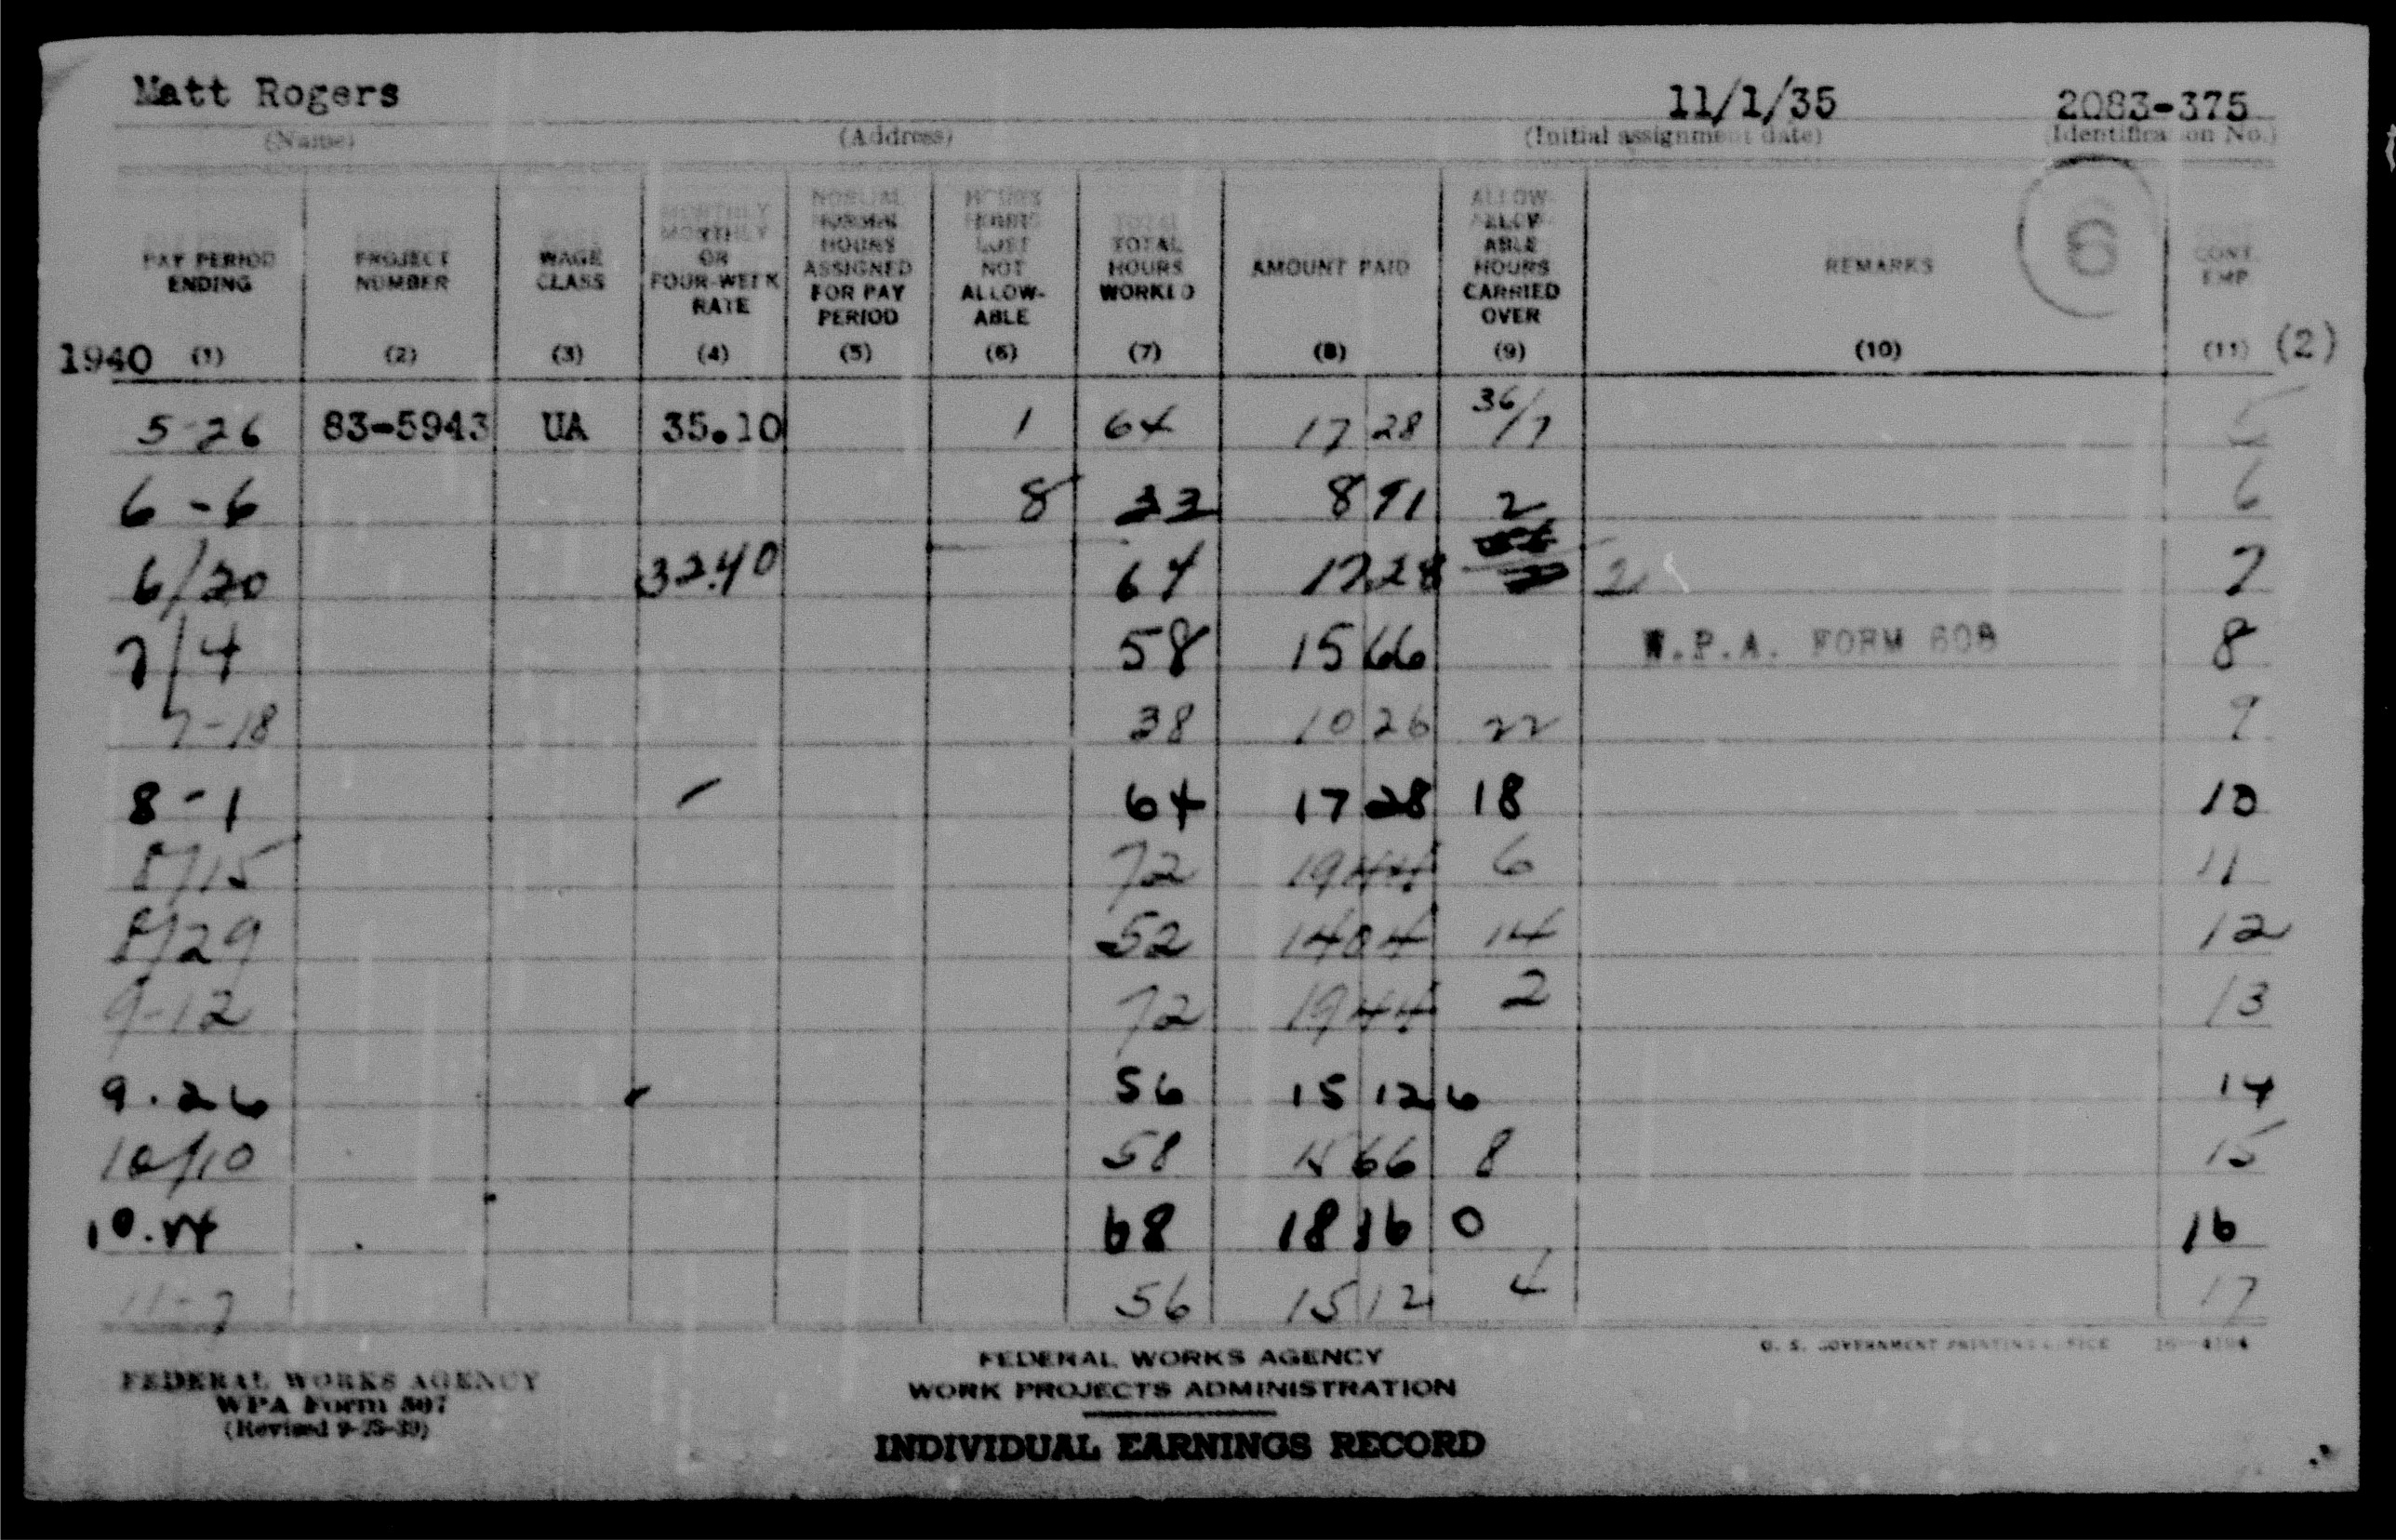 Matt Rogers 11/1/35 2083-375
(Name) (Address) (Initial assignment date) (Identification No.)
6
PAY PERIOD ENDING PROJECT NUMBER WAGE CLASS MONTHLY OR FOUR-WEEK RATE NORMAL HOURS ASSIGNED FOR PAY PERIOD HOURS LOST NOT ALLOW-ABLE TOTAL HOURS WORKED AMOUNT PAID ALLOW-ABLE HOURS CARRIED OVER REMARKS CONT. EMP.
1940 (1) (2) (3) (4) (5) (6) (7) (8) (9) (10) (11) (2)
5-26 83-5943 UA 35.10 1 64 17 28 36/7 5
6-6 8 33 8 91 2 6
6/20 32.40 64 17.28 2 7
7/4 58 15 66 W.P.A. FORM 608 8
7-18 38 10 26 22 9
8-1 64 17 28 18 10
8/15 72 19 44 6 11
8/29 52 14 04 14 12
9-12 72 19 44 2 13
9.26 56 15 12 6 14
10/10 58 15 66 8 15
10.24 68 18 36 0 16
11-7 56 15 12 4 17
U. S. GOVERNMENT PRINTING OFFICE
FEDERAL WORKS AGENCY
WPA Form 507
(Revised 9-25-39)
FEDERAL WORKS AGENCY
WORK PROJECTS ADMINISTRATION
INDIVIDUAL EARNINGS RECORD